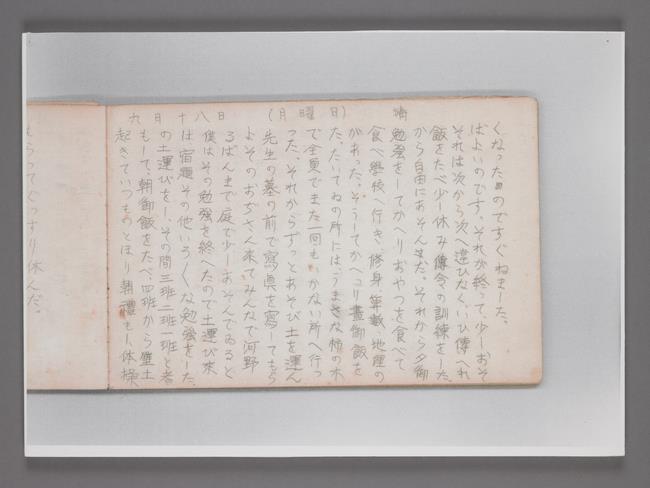 もらってぐっすり休んだ。
九月十八日（月曜日）晴
起きていつものとほり朝禮もし体操
もして、朝御飯をたべ、四班から壁土
の土運びをし、その間三班二班一班と者
は宿題その他いろ〱な勉強をした。
僕はその勉強を終へたので土運び来
るばんまで庭で少しあそんでゐると
よそのおぢさん来てみんなで河野
先生の墓の前で寫眞を寫してもら
った。それからずっとあそび土を運ん
で全員でまた一回もいかない所へ行っ
た。たいてねの所には、うまさな柿の木
があった。そうしてかへり晝御飯を
食べ學校へ行き、修身、算數、地理の
勉強をしてかへりおやつを食べて
から自由にあそんだ。それから夕御
飯をたべ少し休み傳令の訓練をした。
それは次から次へ違ひなく、いひ傳へれ
ばよいのです。それが終って、少しおそ
くなったのですぐねました。